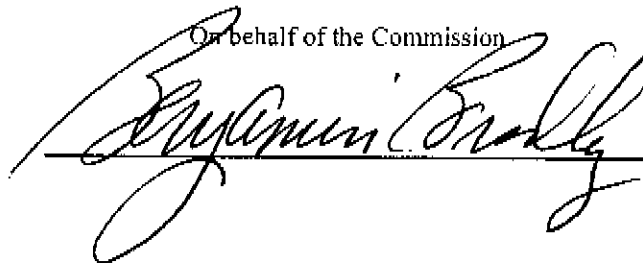 On behalf of the Commission
Benjamin Bradley